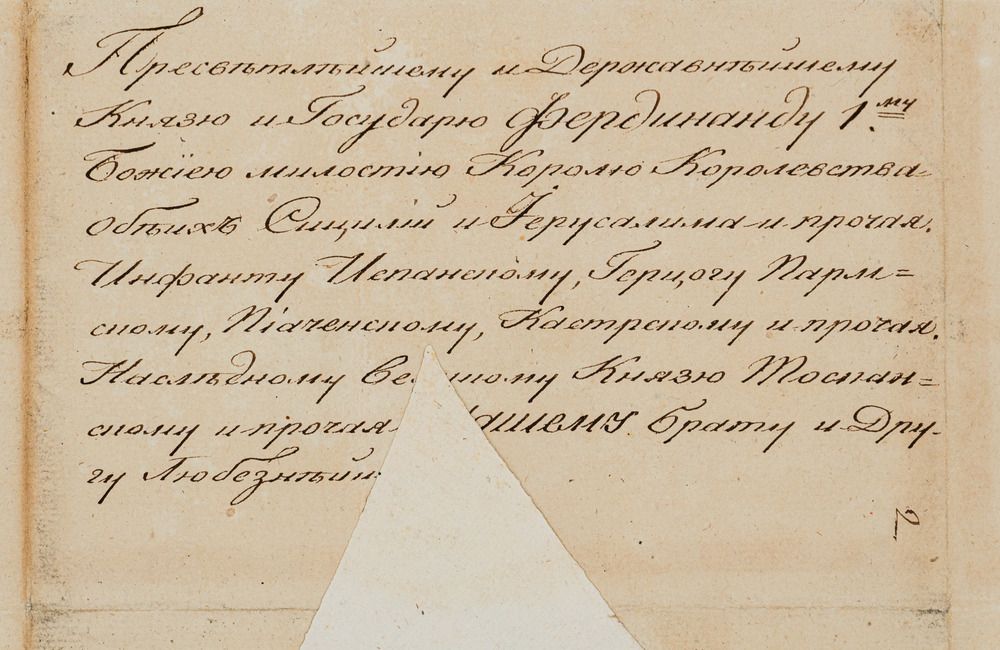 Пресвѣтлѣйшему и Державнѣйшему
Князю и Государю Фердинанду 1.му
Божіею милостію Королю Королевства
обѣихъ Сицилій и Іерусалима и прочая.
Инфанту Испанскому, Герцогу Парм=
скому, Піаченскому, Кастрскому и прочая.
Наслѣдному Князю Тоскан=
скому и прочая Нашему Брату и Дру-
гу Любезнѣй
2